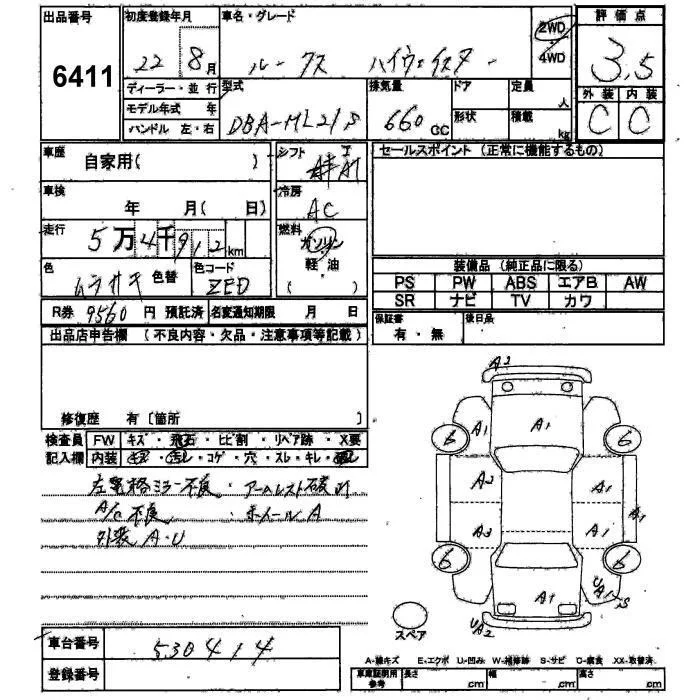 出品番号 6411
初度登録年月 22 8月
車名・グレード ルークス ハイウェイスター
2WD 4WD
評価点 3.5
外装 内装
C C
ディーラー・並行
モデル年式 年
ハンドル 左・右
型式 DBA-ML21S
排気量 660cc
ドア 形状
定員 人
積載 kg
車歴 自家用( )
シフト
セールスポイント (正常に機能するもの)
車検 年 月( 日)
冷房 AC
走行 5万4千912km
燃料 ガソリン 軽油 ( )
色 ムラサキ 色替
色コード ZED
装備品(純正品に限る)
PS PW ABS エアB AW
SR ナビ TV カワ
R券 9560 円 預託済 名変通知期限 月 日
保証書 有・無
後日品
出品店申告欄(不良内容・欠品・注意事項等記載)
修復歴 有〔箇所 〕
検査員 FW キズ・飛石・ヒビ割・リペア跡・X要
記入欄 内装 ・コゲ・穴・スレ・キレ・
左電格ミラー不良・アームレスト破れ
A/C不良 ・ホイールA
外装A・U
A2
A1 A1 A1
6 6
A2 A1
A1
A3 A1
6 6
A1
UA2
スペア
A-線キズ E-エクボ U-凹み W-補修跡 S-サビ C-腐食 XX-取替済
車台番号 530414
登録番号
車庫証明用参考 長さ cm 幅 cm 高さ cm